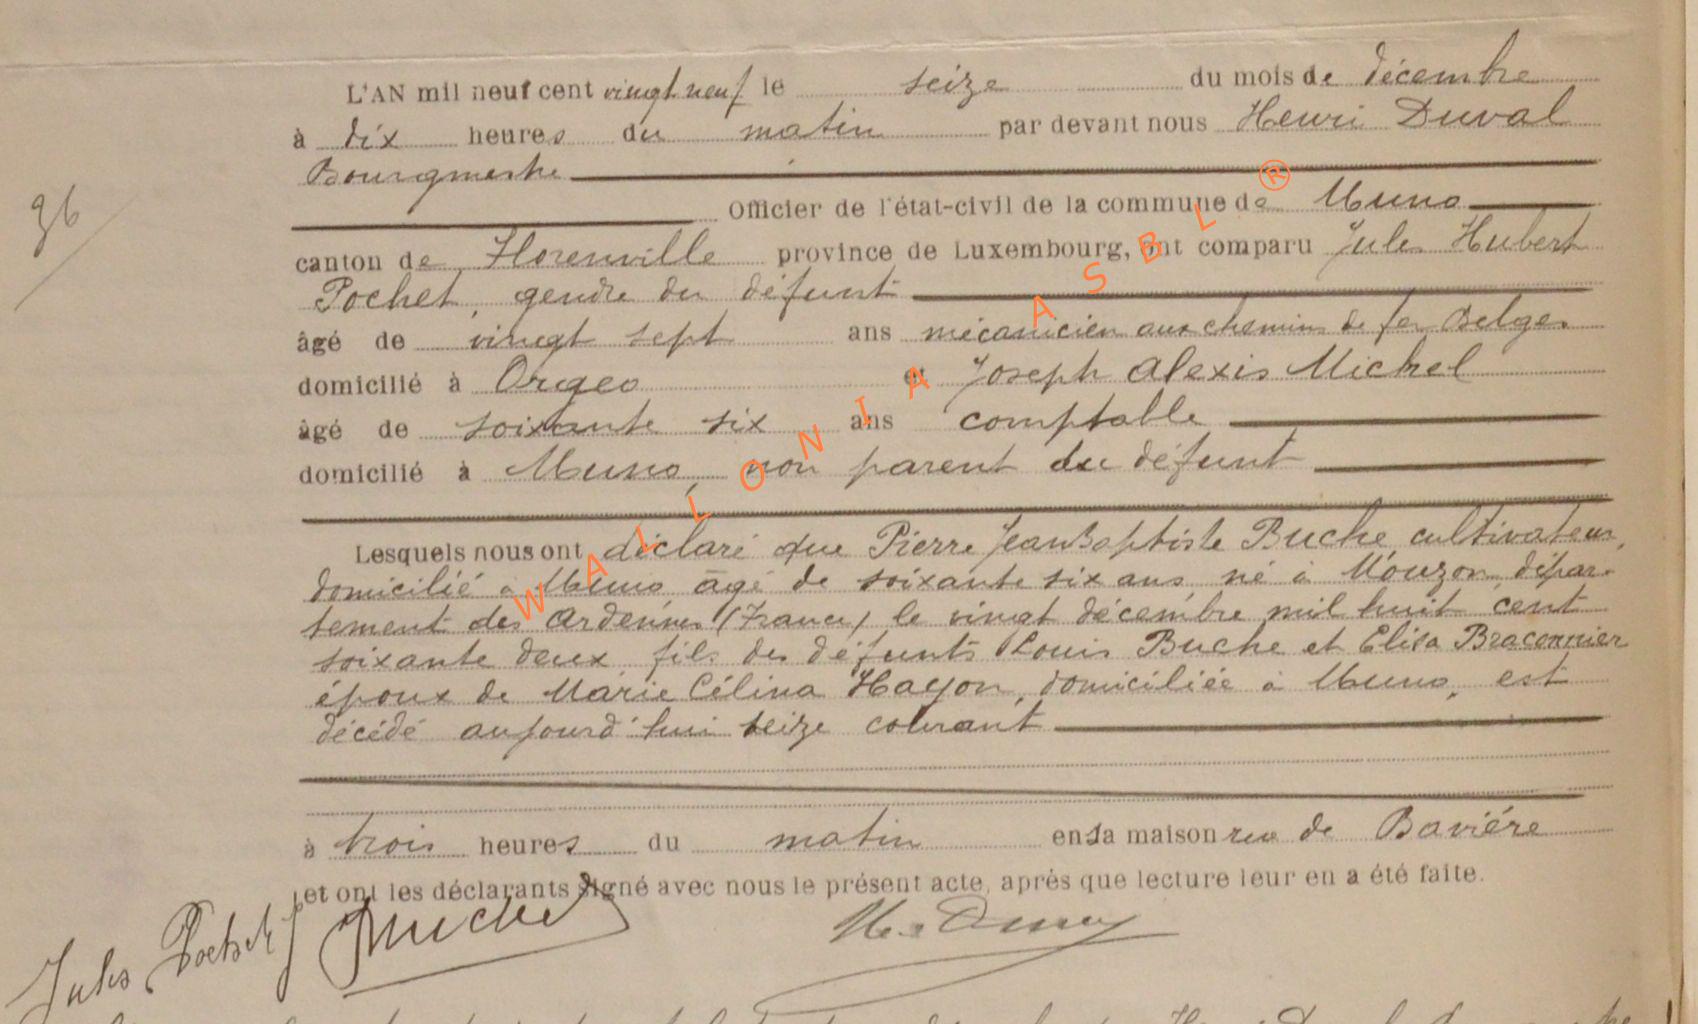 L'AN mil neuf cent vingt neuf le seize du mois de décembre
à dix heures du matin par devant nous Henri Duval
Bourgmestre
36
Officier de l'état-civil de la commune de Muno
canton de Florenville province de Luxembourg, ont comparu Jules Hubert
Pochet, gendre du défunt
âgé de vingt sept ans mécanicien aux chemins de fer Belges
domicilié à Orgeo et Joseph Alexis Michel
âgé de soixante six ans comptable
domicilié à Muno, non parent du défunt
Lesquels nous ont déclaré que Pierre Jean Baptiste Buche cultivateur,
domicilié à Muno âgé de soixante six ans, né à Mouzon, dépar-
tement des Ardennes (France) le vingt décembre mil huit cent
soixante deux fils des défunts Louis Buche et Elisa Braconnier
époux de Marie Célina Hayon, domiciliée à Muno, est
décédé aujourd'hui seize courant
à trois heures du matin en sa maison rue de Bavière
et ont les déclarants signé avec nous le présent acte, après que lecture leur en a été faite.
Jules Pochet JMichel H. Duval
WALLONIA ASBL ®